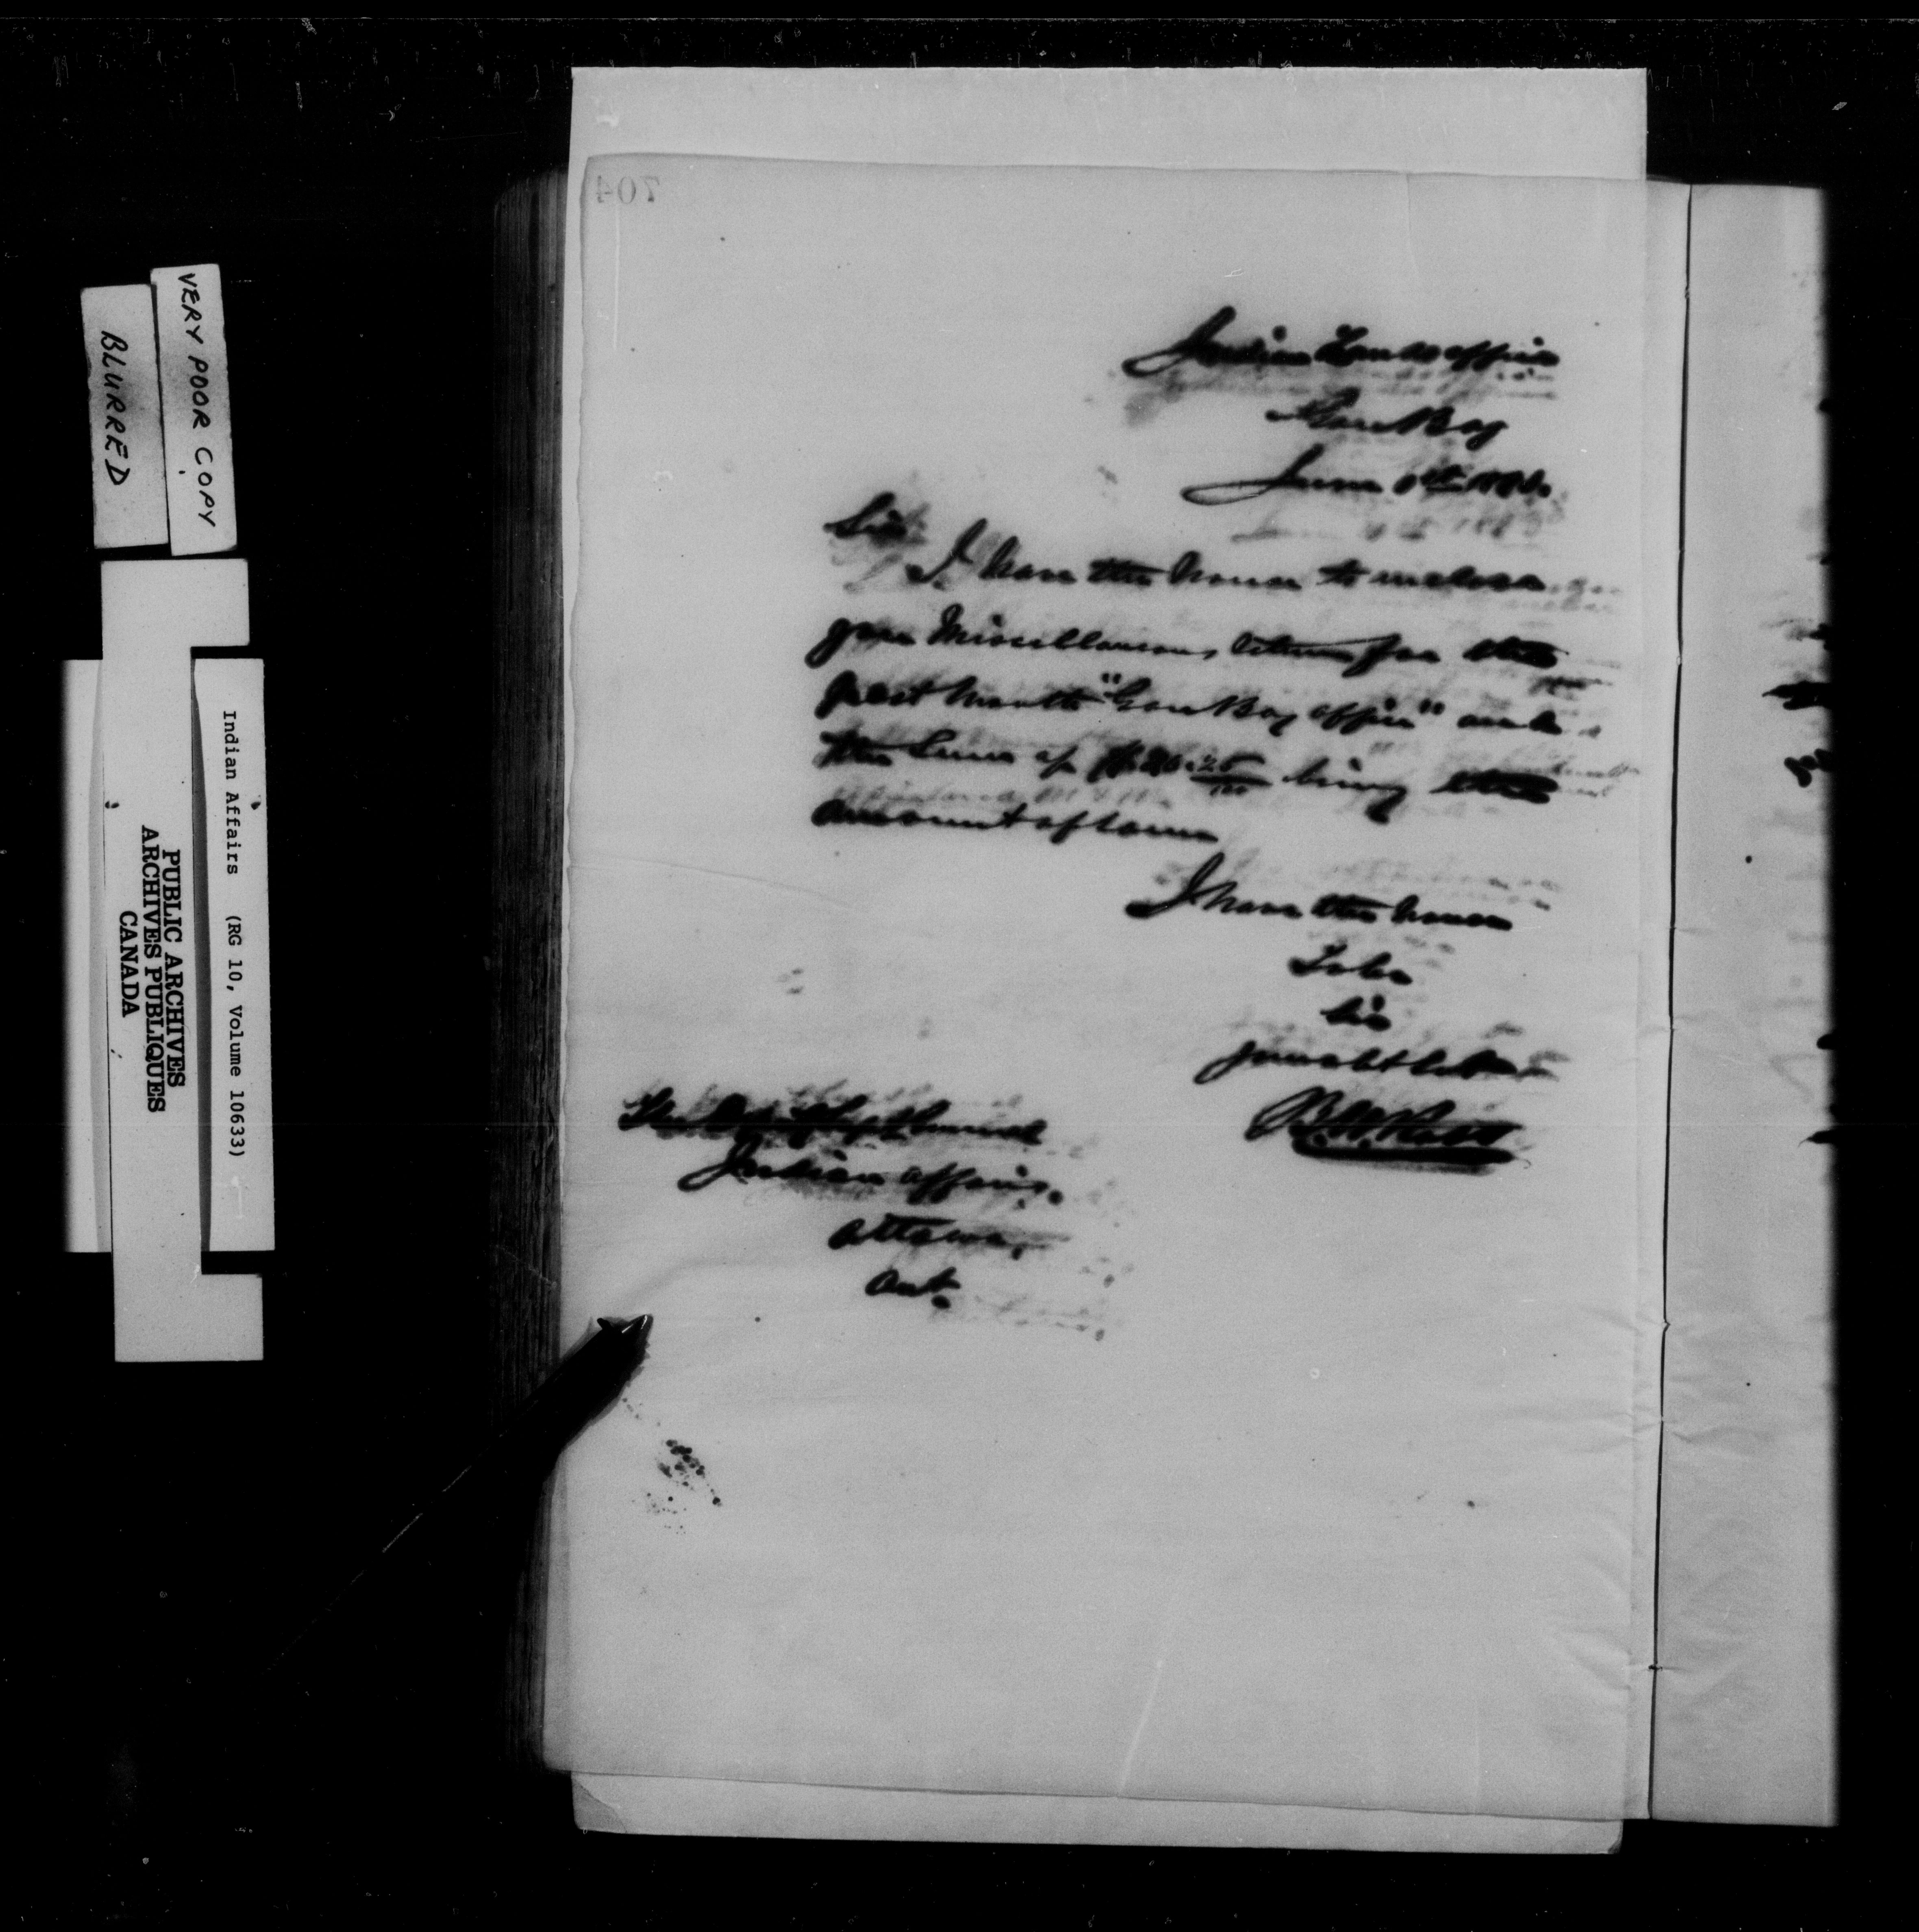 704
Indian Lands office
Gore Bay
June
Sir
I have the honor to enclose
you Miscellaneous return for the
past month "Gore Bay office" and
the sum of 25/100 being the
amount of same
I have the honor
To be
Sir
Your obt Sert
B.W. Ross
The Dept Supt General
Indian affairs.
Ottawa,
Ont.
VERY POOR COPY
BLURRED
Indian Affairs (RG 10, Volume 10633)
PUBLIC ARCHIVES
ARCHIVES PUBLIQUES
CANADA